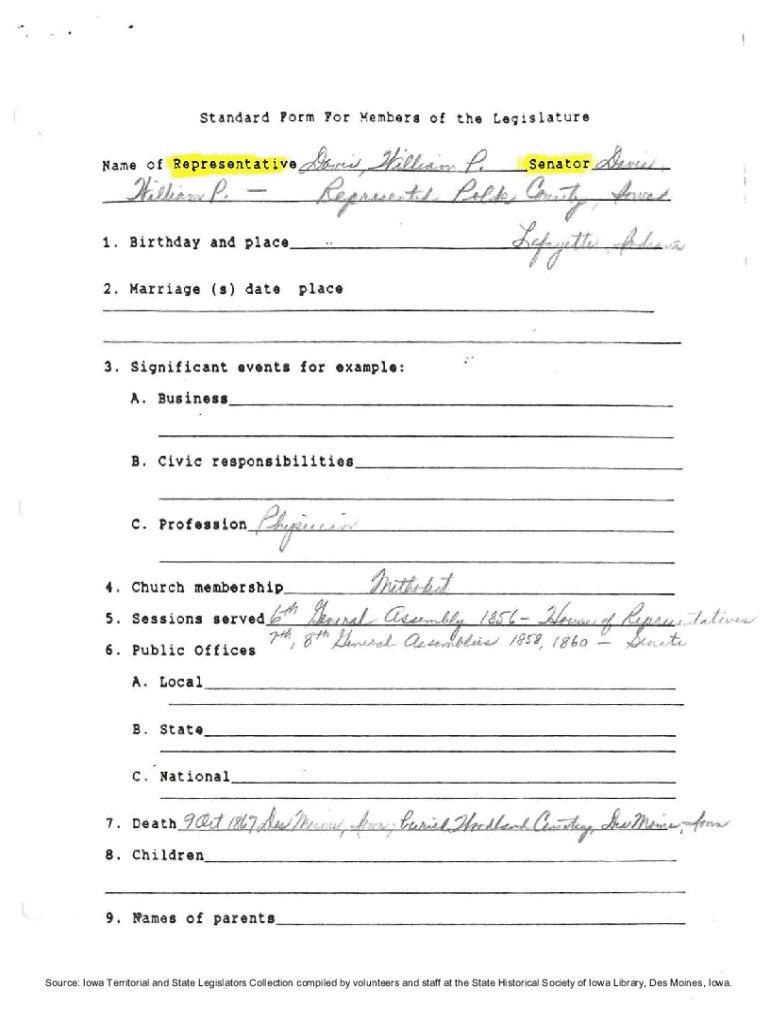 Standard Form For Members of the Legislature
Name of Representative Davis, William P. Senator Davis,
William P. — Represented Polk County, Iowa
1. Birthday and place Lafayette, Indiana
2. Marriage (s) date place
3. Significant events for example:
A. Business
B. Civic responsibilities
C. Profession Physician
4. Church membership Methodist
5. Sessions served 6th General Assembly 1856 – House of Representatives
7th, 8th General Assemblies 1858, 1860 – Senate
6. Public Offices
A. Local
B. State
C. National
7. Death 9 Oct 1867 Des Moines, Iowa; buried Woodland Cemetery, Des Moines, Iowa
8. Children
9. Names of parents
Source: Iowa Territorial and State Legislators Collection compiled by volunteers and staff at the State Historical Society of Iowa Library, Des Moines, Iowa.